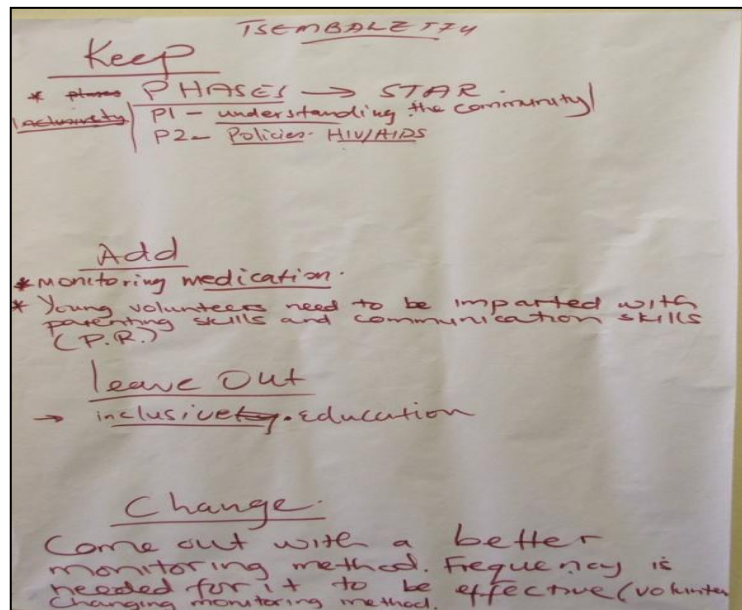 TSEMBALETTU
Keep
* PHASES → STAR
P1 - understanding the community
P2 - Policies - HIV/AIDS
Add
* Monitoring medication.
* Young volunteers need to be imparted with
parenting skills and communication skills
(P.R.)
leave Out
→ inclusive education
Change.
Come out with a better
monitoring method. Frequency is
needed for it to be effective (volunter
Changing monitoring method.